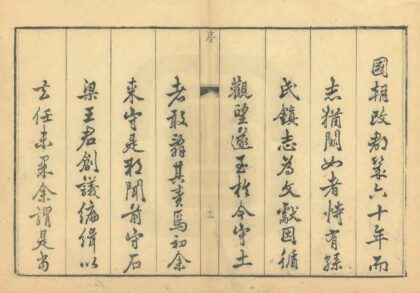 國朝改郡業六十年而
志猶闕如者恃有孫
氏鎮志為文獻因循
觀望遂至於今守土
序
二
者敢辭其責焉初余
來守是邦聞前守石
梁王君創議編緝以
去任未果余謂是尚